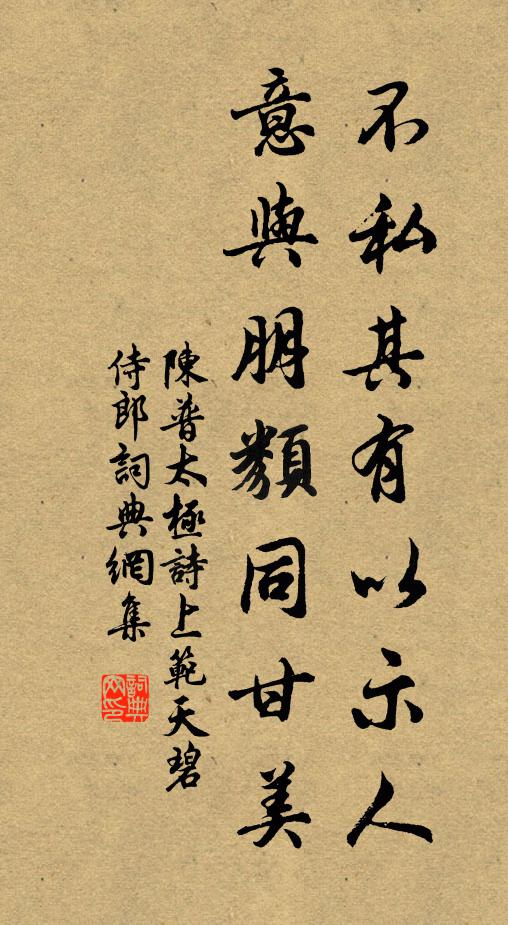 不私其有以示人
意與朋類同甘美
陳普太極詩上範天碧
侍郎詞典網集
詞典網印